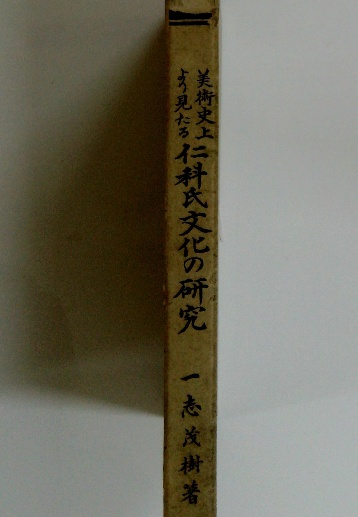 美術史上
より見たる
仁科氏文化の研究
一志茂樹著